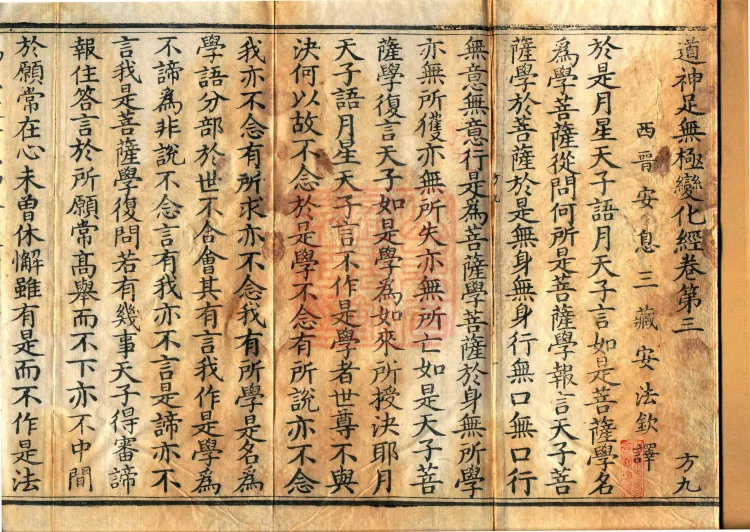 道神足無極變化經卷第三
方九
西晉安息三藏安法欽譯
於是月星天子語月天子言如是菩薩學名
為學菩薩從問何所是菩薩學報言天子菩
薩學於菩薩於是無身無身行無口無口行
無意無意行是為菩薩學菩薩於身無所學
亦無所獲亦無所失亦無所亡如是天子菩
薩學復言天子如是學為如來所授決耶月
天子語月星天子言不作是學者世尊不與
決何以故不念於是學不念有所說亦不念
我亦不念有所求亦不念我有所學是名為
學語分部於世不合會其有言我作是學為
不諦為非說不念言有我亦不言是諦亦不
言我是菩薩學復問若有幾事天子得審諦
報住答言於所願常高舉而不下亦不中閒
於願常在心未曾休懈雖有是而不作是法
方九